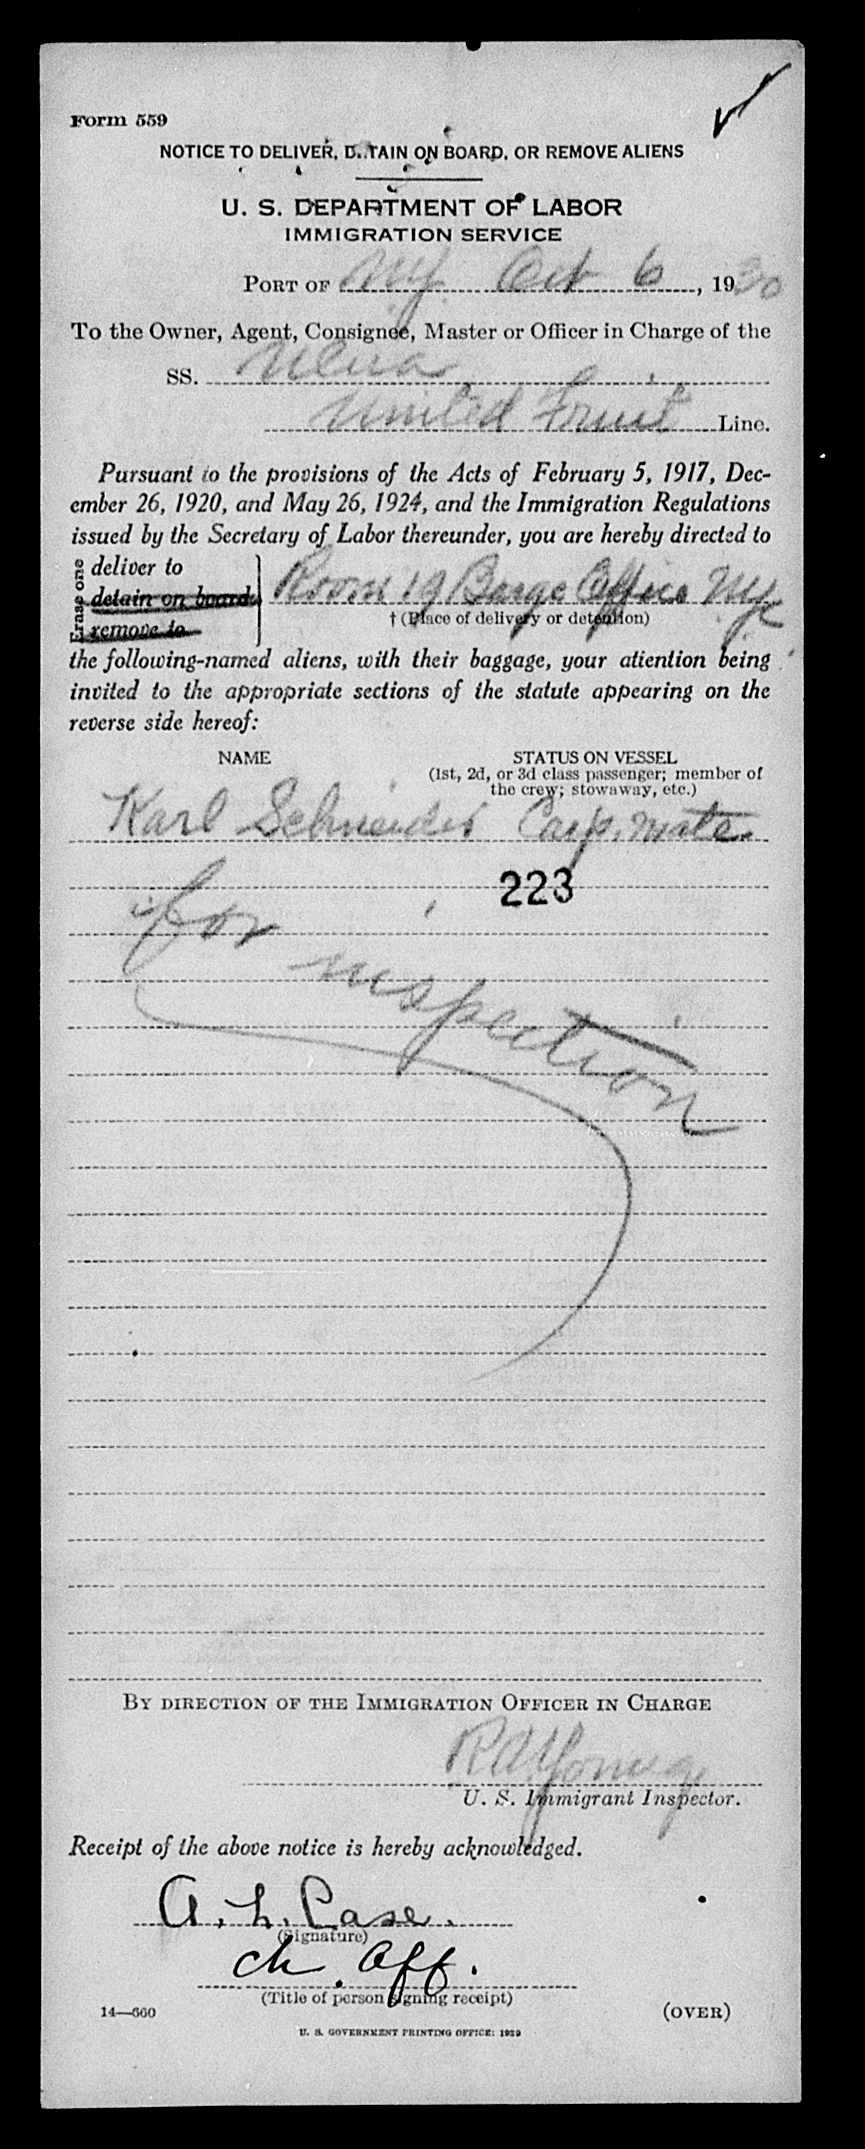 Form 559
NOTICE TO DELIVER, DETAIN ON BOARD, OR REMOVE ALIENS
U. S. DEPARTMENT OF LABOR
IMMIGRATION SERVICE
PORT OF N.Y. Oct 6, 1930
To the Owner, Agent, Consignee, Master or Officer in Charge of the
SS. Ulua
United Fruit Line.
Pursuant to the provisions of the Acts of February 5, 1917, Dec-
ember 26, 1920, and May 26, 1924, and the Immigration Regulations
issued by the Secretary of Labor thereunder, you are hereby directed to
Erase one
deliver to
detain on board
remove to
Room 19 Barge Office N.Y.C
† (Place of delivery or detention)
the following-named aliens, with their baggage, your attention being
invited to the appropriate sections of the statute appearing on the
reverse side hereof:
NAME STATUS ON VESSEL
(1st, 2d, or 3d class passenger; member of
the crew; stowaway, etc.)
Karl Schneider Carp. mate
223
for inspection
BY DIRECTION OF THE IMMIGRATION OFFICER IN CHARGE
R A Young
U. S. Immigrant Inspector.
Receipt of the above notice is hereby acknowledged.
A. L. Case.
(Signature)
ch. Off.
(Title of person signing receipt)
14—660 (OVER)
U. S. GOVERNMENT PRINTING OFFICE: 1929